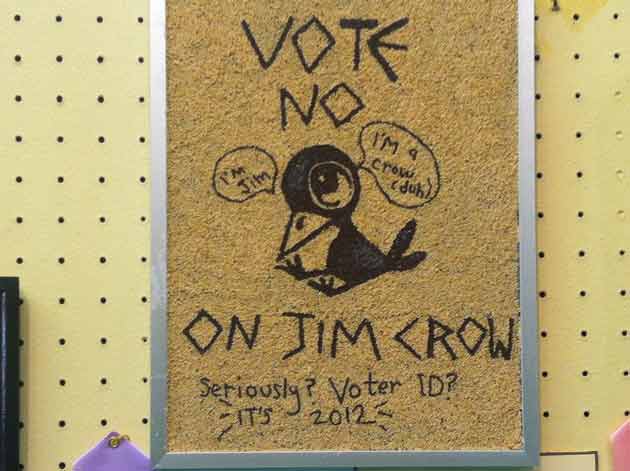 VOTE
NO
I'M
JIM
I'M a
crow
(duh)
ON JIM CROW
Seriously? Voter ID?
IT'S 2012